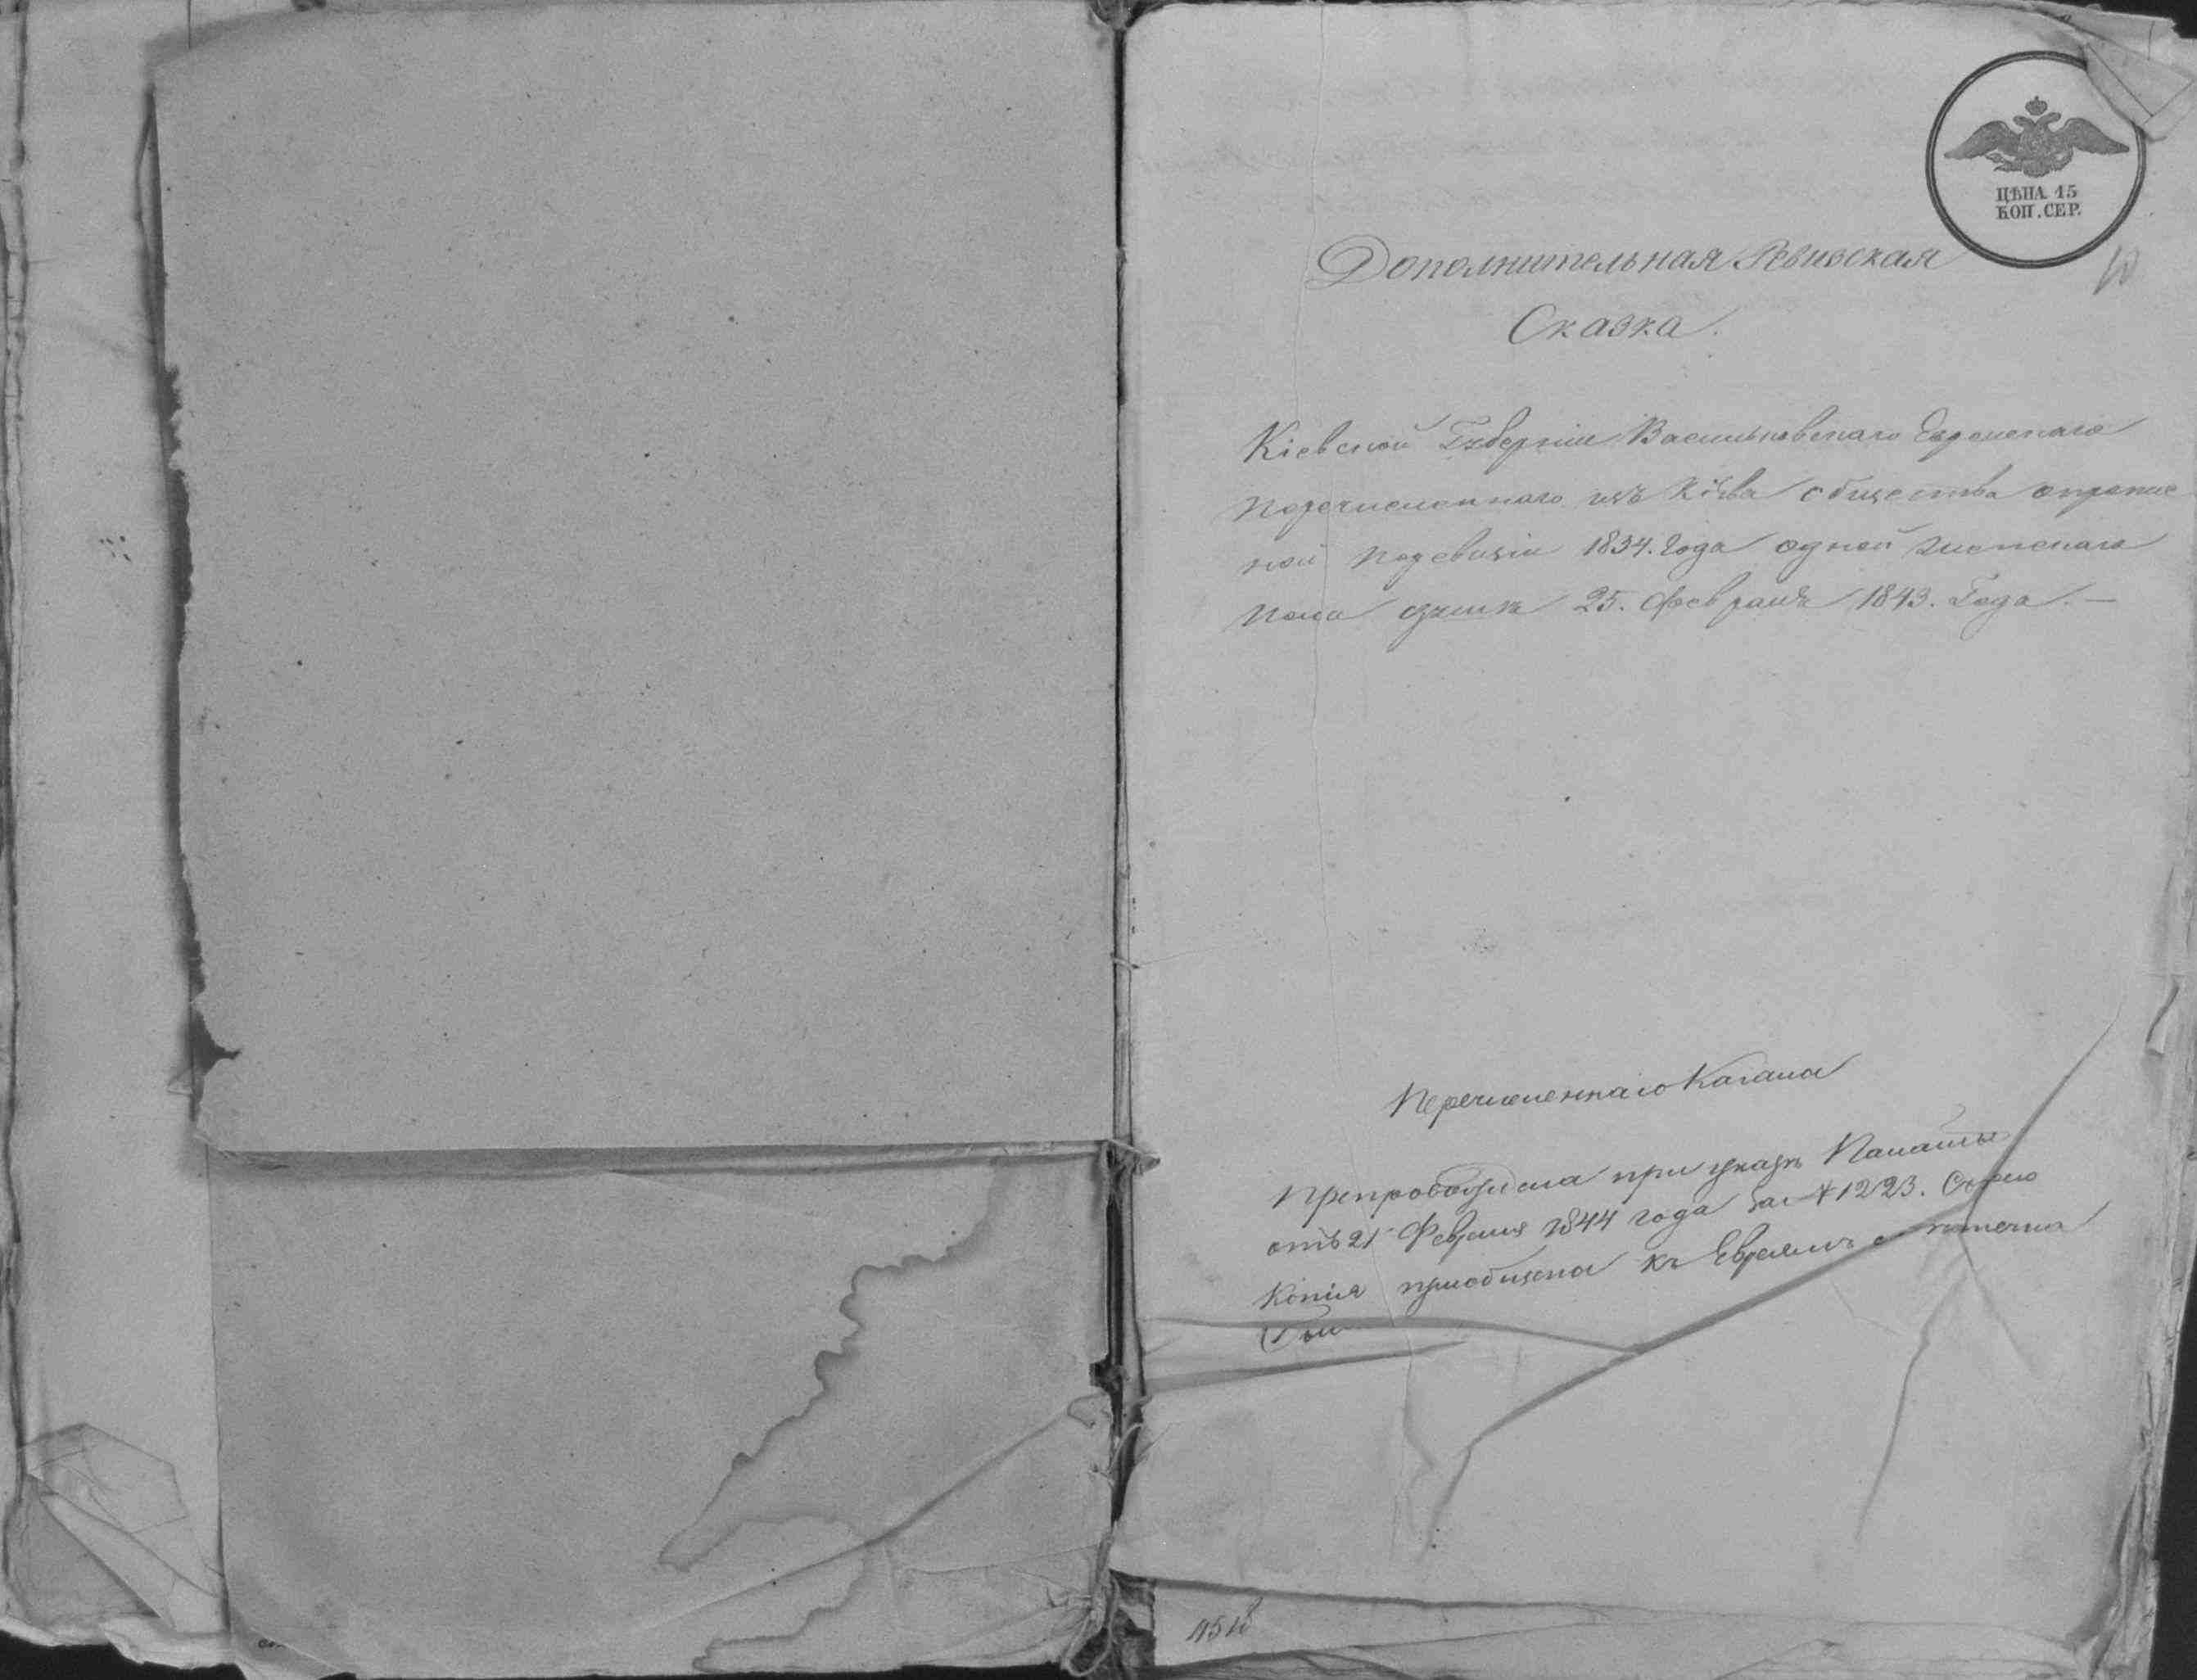 ЦѢНА 15
КОП. СЕР.
10
Дополнительная Ревизская
Сказка.
Кіевской Губерніи Васильковскаго Еврейскаго
перечисленнаго изъ Кіева общества
ной по ревизіи 1834. года одной женскаго
пола души 25. Февраля 1843. Года. —
Перечисленнаго Кагала
Препровождена при указѣ Палаты
отъ 21 Февраля 1844 года за № 1223.
Копія пріобщена къ Евреямъ